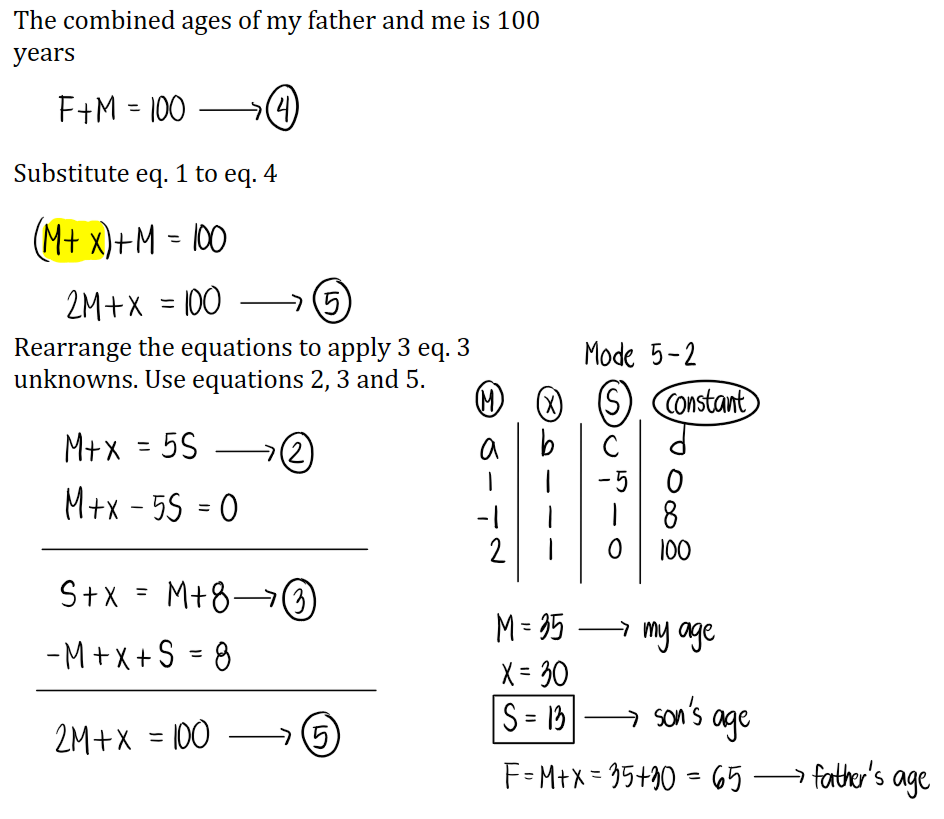 The combined ages of my father and me is 100
years
F+M = 100 → ④
Substitute eq. 1 to eq. 4
(M+ x)+M = 100
2M+x = 100 → ⑤
Rearrange the equations to apply 3 eq. 3
unknowns. Use equations 2, 3 and 5.
M+x = 5S → ②
M+x - 5S = 0
S+x = M+8 → ③
-M+x+S = 8
2M+x = 100 → ⑤
Mode 5-2
M x S constant
a b c d
1 1 -5 0
-1 1 1 8
2 1 0 100
M = 35 → my age
x = 30
S = 13 → son's age
F = M+x = 35+30 = 65 → father's age